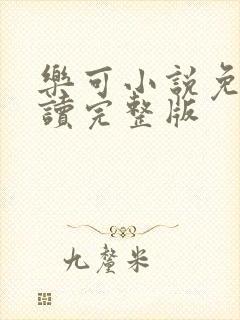 樂可小說免
讀完整版
九釐米